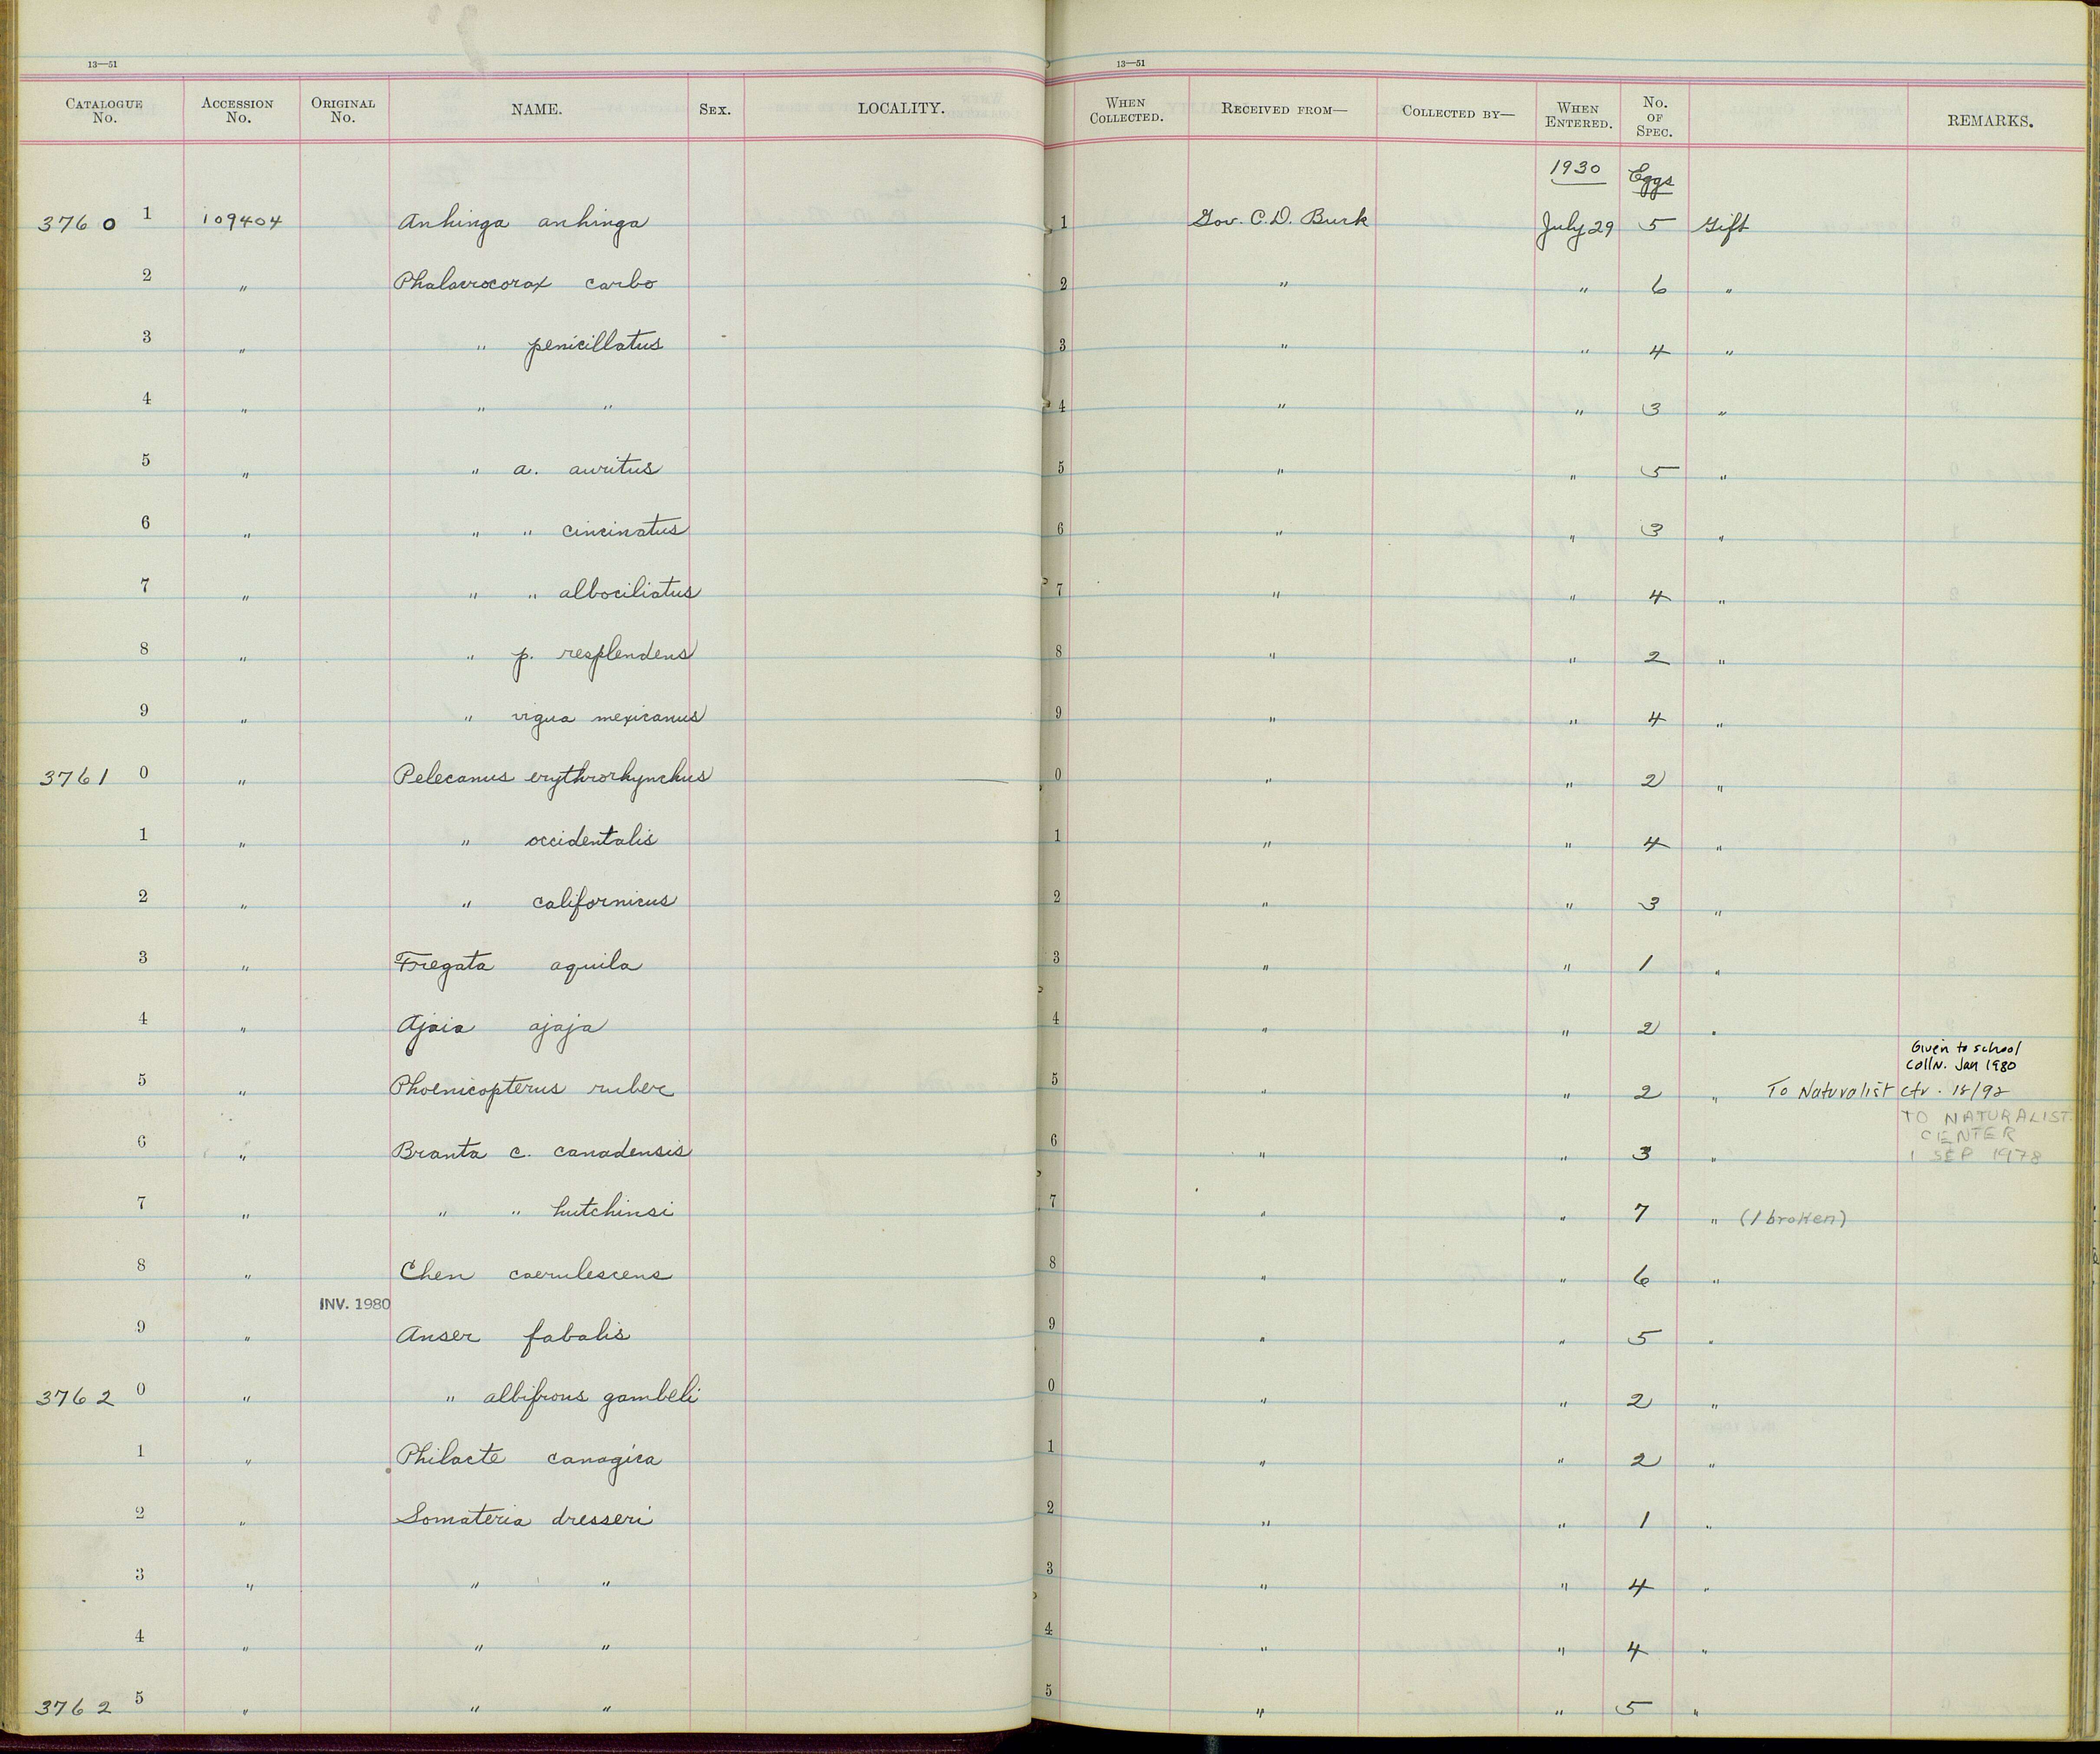 13—51
13—51
CATALOGUE No. ACCESSION No. ORIGINAL No. NAME. SEX. LOCALITY. WHEN COLLECTED. RECEIVED FROM— COLLECTED BY— WHEN ENTERED. No. OF SPEC. REMARKS.
1930 Eggs
3760 1 109404 Anhinga anhinga 1 Gov. C.D. Burk July 29 5 Gift
2 " Phalacrocorax carbo 2 " " 6 "
3 " " penicillatus 3 " " 4 "
4 " " " 4 " " 3 "
5 " " a. auritus 5 " " 5 "
6 " " " cincinatus 6 " " 3 "
7 " " " albociliatus 7 " " 4 "
8 " " p. resplendens 8 " " 2 "
9 " " vigua mexicanus 9 " " 4 "
3761 0 " Pelecanus erythrorhynchus 0 " " 2 "
1 " " occidentalis 1 " " 4 "
2 " " californicus 2 " " 3 "
3 " Fregata aquila 3 " " 1 "
4 " Ajaia ajaja 4 " " 2 "
Given to school
Colln. Jan 1980
5 " Phoenicopterus ruber 5 " " 2 " To Naturalist Ctr. 12/92
TO NATURALIST
CENTER
6 " Branta c. canadensis 6 " " 3 " 1 SEP 1978
7 " " " hutchinsi 7 " " 7 " (1 broken)
8 " Chen caerulescens 8 " " 6 "
INV. 1980
9 " Anser fabalis 9 " " 5 "
3762 0 " " albifrons gambeli 0 " " 2 "
1 " Philacte canagica 1 " " 2 "
2 " Somateria dresseri 2 " " 1 "
3 " " " 3 " " 4 "
4 " " " 4 " " 4 "
3762 5 " " " 5 " " 5 "